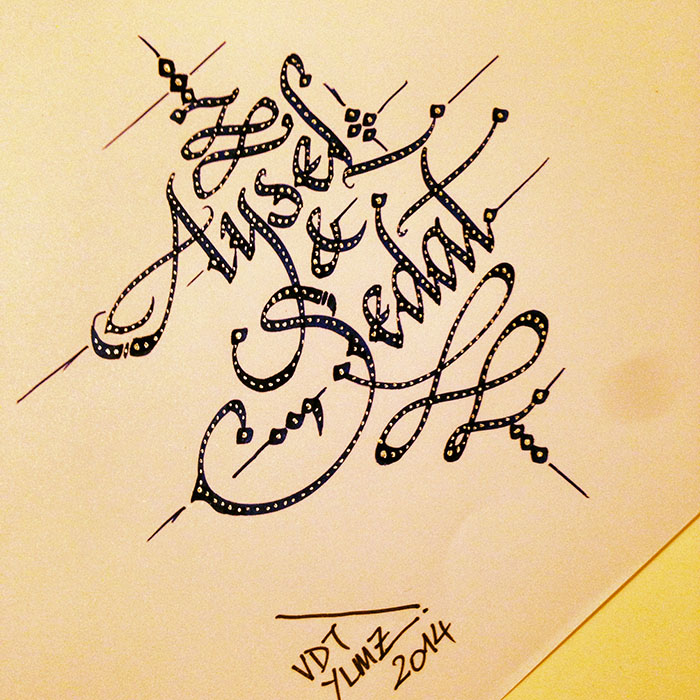 Aysel
&
Sedat
VDT
YLMZ
2014